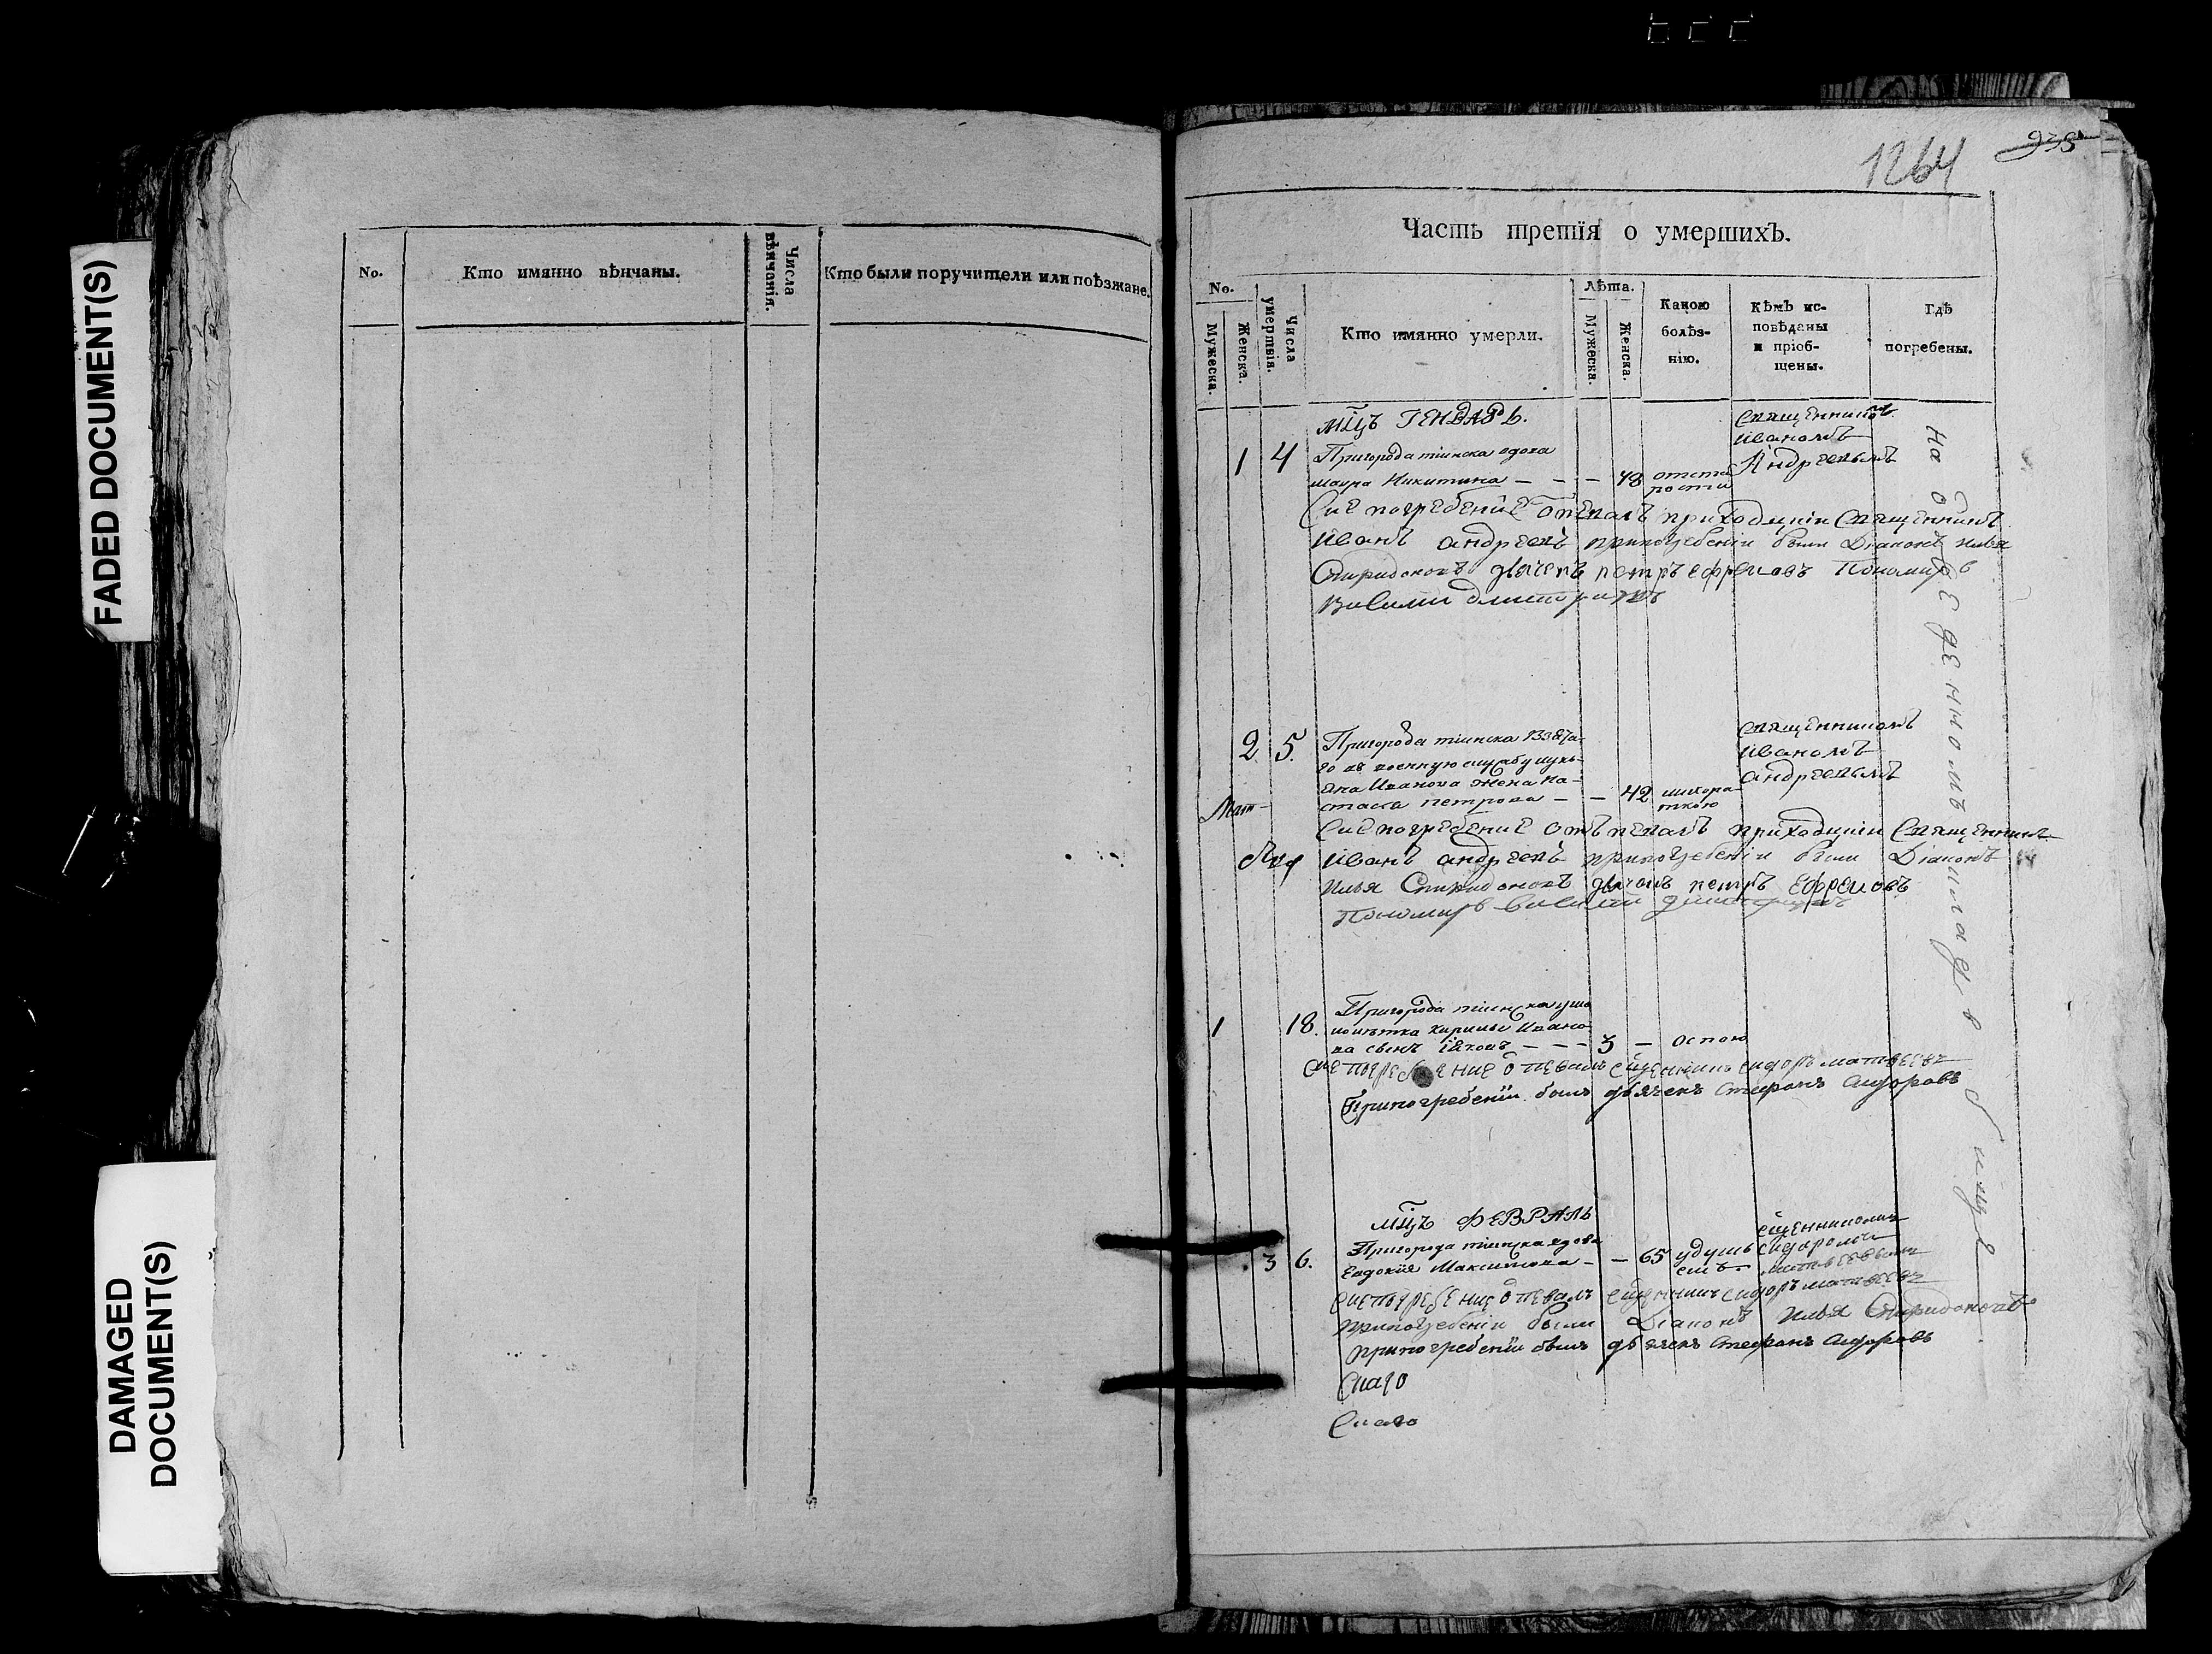 FADED DOCUMENT(S)
DAMAGED
DOCUMENT(S)
No.
Кто имянно вѣнчаны.
Числа
вѣнчанія.
Кто были поручители или поѣзжане.
1264
935
Часть третія о умершихъ.
No.
Мужеска.
Женска.
Числа
умертвія.
Кто имянно умерли.
Лѣта.
Мужеска.
Женска.
Какою
болѣз-
нію.
Кѣмъ ис-
повѣданы
и пріоб-
щены.
Гдѣ
погребены.
мцъ Генварь.
1 4 Пригорода тіинска вдова
мавра Никитина — — — 48 отста
рости
священникомъ
Иваномъ
Андреевымъ
Сие погребение отпевалъ приходцкіи священникъ
Иванъ андреевъ припогребеніи были Діаконъ Илья
Спиридоновъ дьячекъ петръ ефремовъ Пономарь
2 5. Пригорода тіинска взята-
го въ военную службу лукь-
яна Иванова жена на-
стасья петрова — — 42
священникомъ
Иваномъ
андреевымъ
Сие погребение отъпевалъ приходцкіи священникъ
Иванъ андреевъ припогребеніи были Діаконъ
Илья Спиридоновъ дьячекъ петръ ефремовъ
Пономарь
1 18. Пригорода тіинска
Кирилы Ивано-
ва сынъ — — — 3 — оспою
сие погребение отпевалъ сщенникъ сидоръ матвеевъ
припогребеніи былъ дьячекъ Стефанъ Сидоровъ
мцъ февраль
3 6. Пригорода тіинска вдова
Евдокия Максимова — — 65 удушь
емъ
сщенникомъ
сидоромъ
матвеевымъ
сие погребение отпевалъ сщенникъ сидоръ матвеевъ
припогребеніи были Діаконъ Илья Спиридоновъ
припогребеніи былъ дьячекъ Стефанъ Сидоровъ
на отведенномъ кладбище